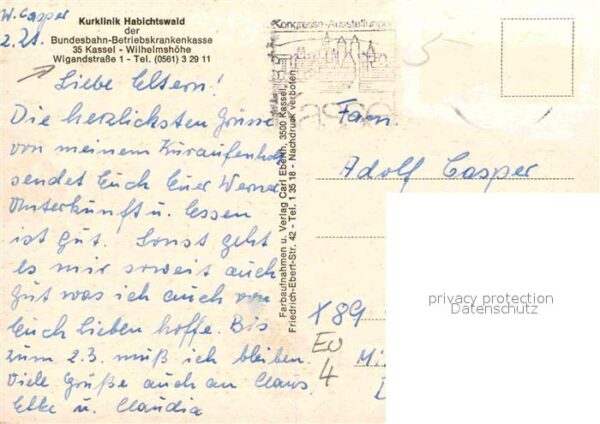 W. Casper
2.21.
Kurklinik Habichtswald
der
Bundesbahn-Betriebskrankenkasse
35 Kassel - Wilhelmshöhe
Wigandstraße 1 - Tel. (0561) 3 29 11
Liebe Eltern!
Die herzlichsten Grüsse
von meinem Kuraufenthalt
sendet Euch Euer Werner
Unterkunft u. Essen
ist gut. Sonst geht
es mir soweit auch
gut was ich auch von
Euch Lieben hoffe. Bis
zum 2.3. muß ich bleiben.
Viele Grüße auch an Claus
Elke u. Claudia
Farbaufnahmen u. Verlag Carl Eberth, 3500 Kassel,
Friedrich-Ebert-Str. 42 - Tel. 1 35 18 - Nachdruck verboten
Kongresse-Ausstellungen
5
Fam
Adolf Casper
X 89
EU
4
privacy protection
Datenschutz